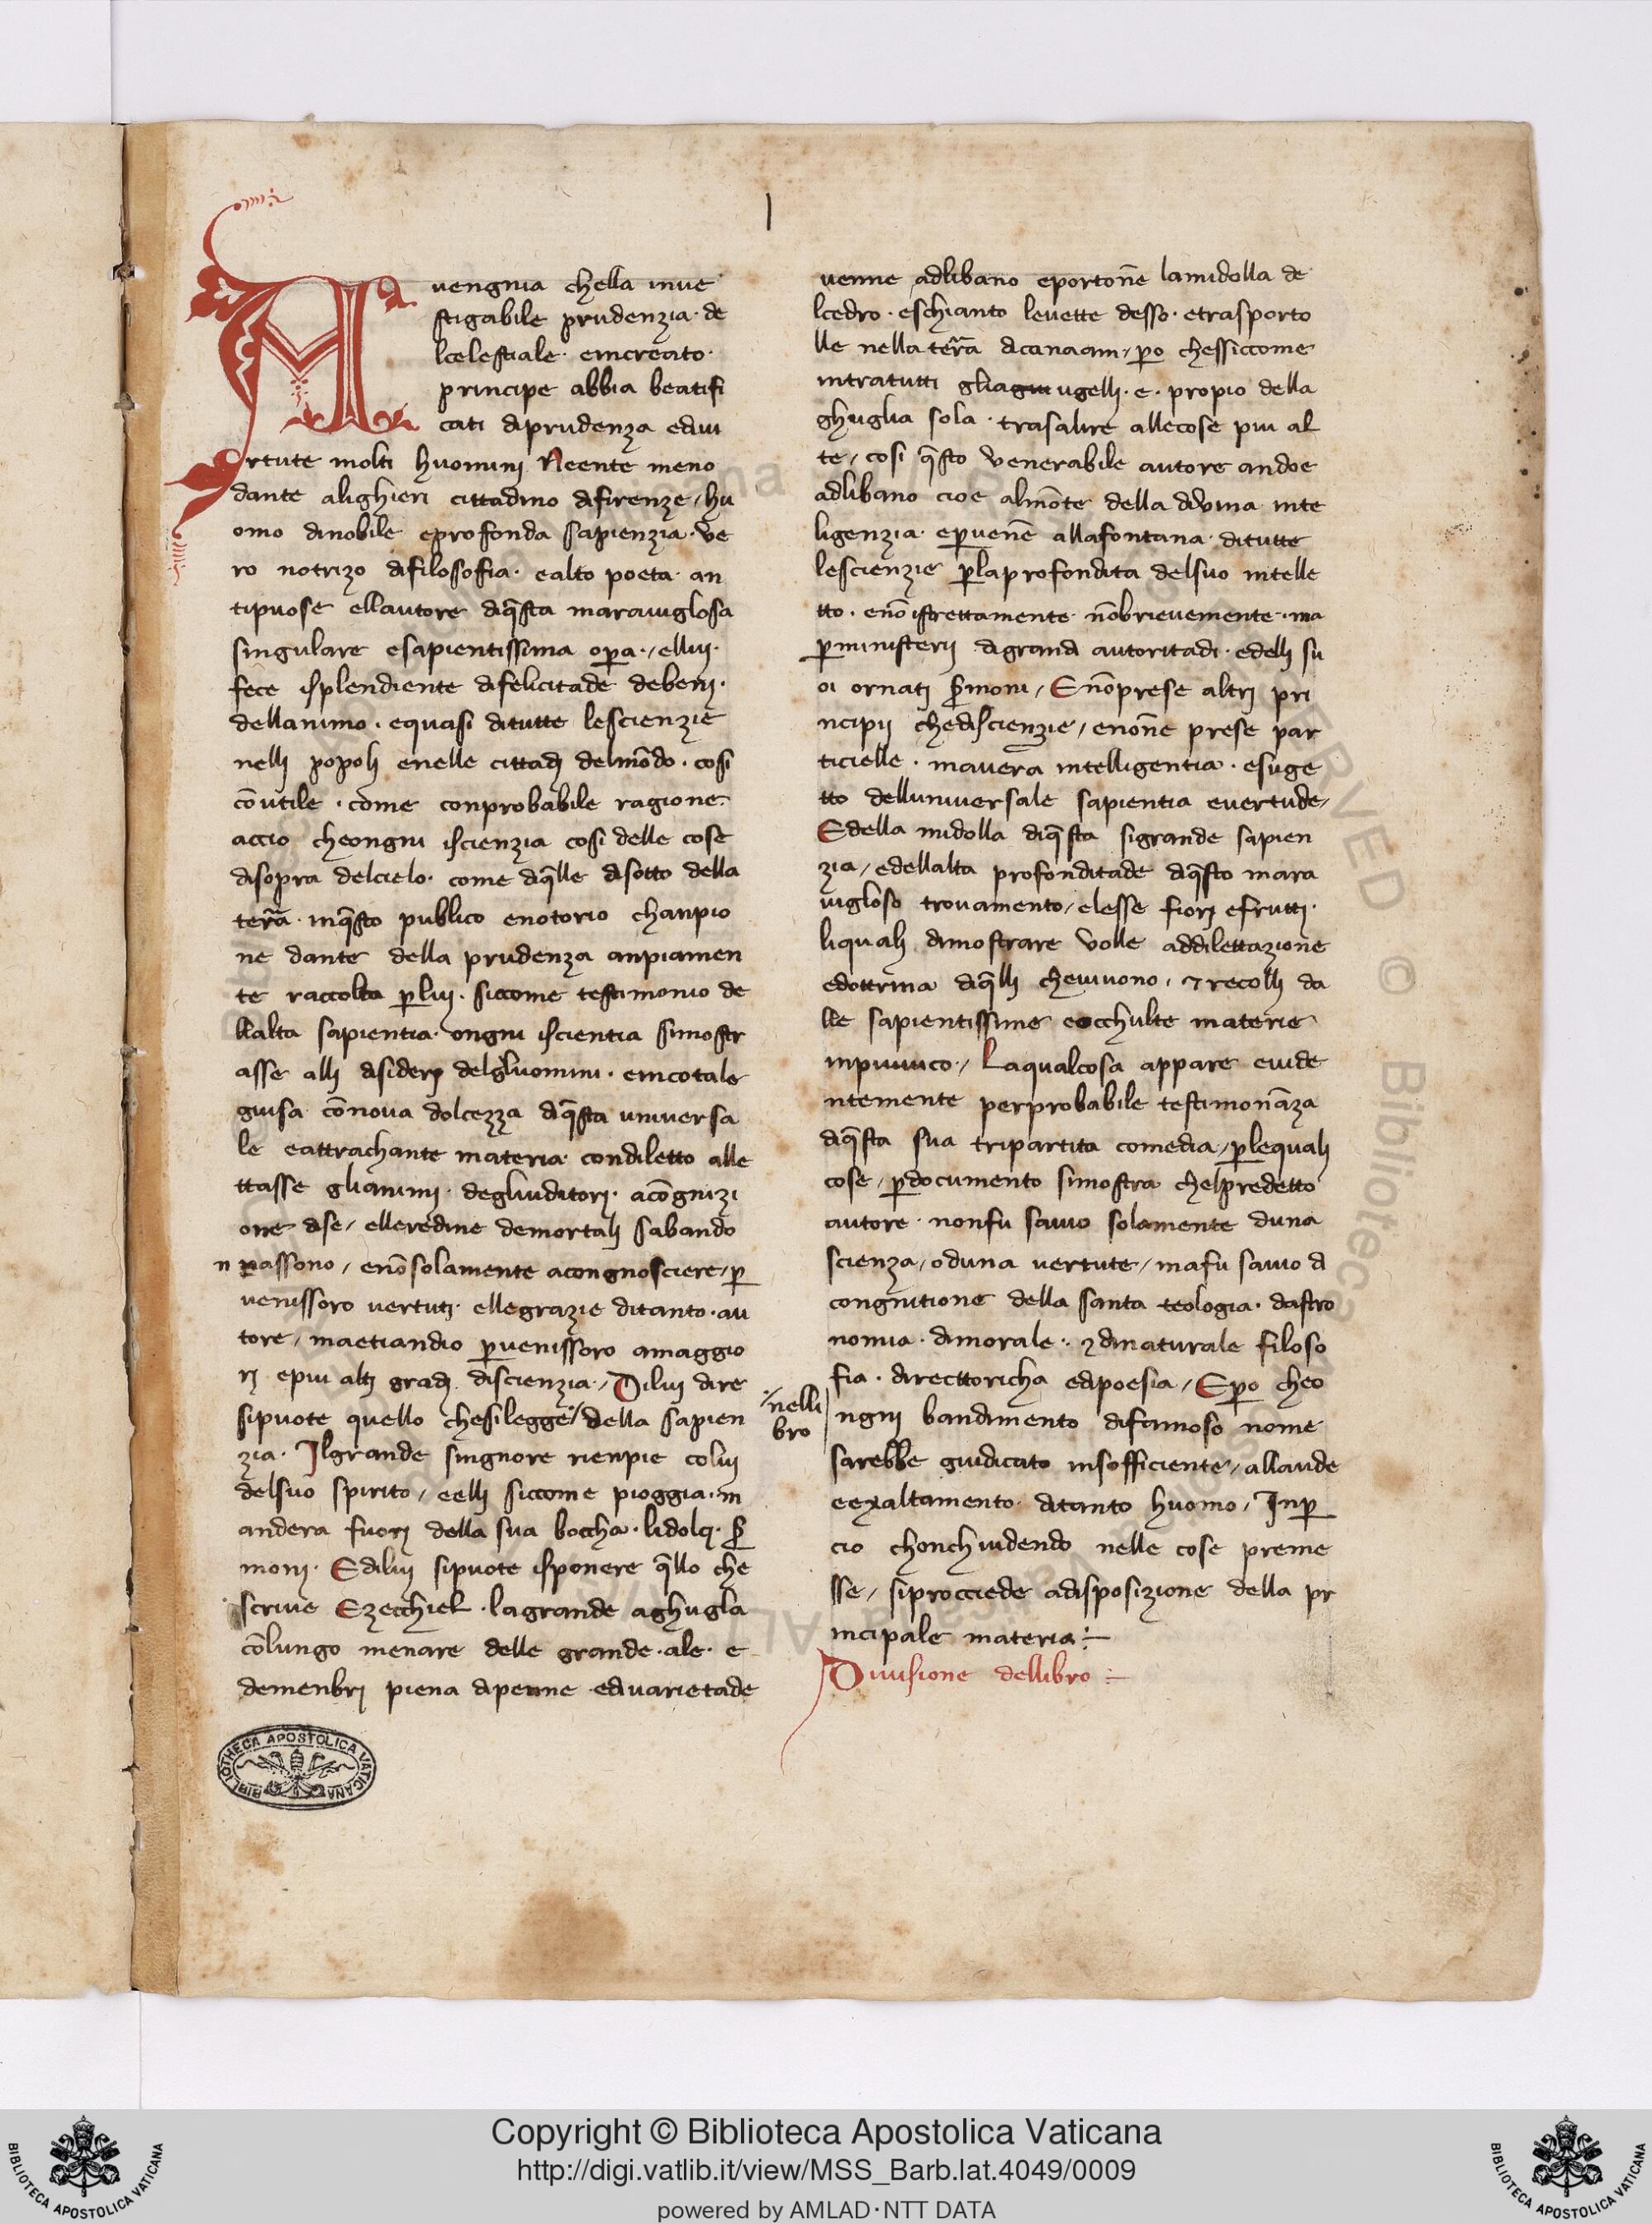 Auengnia chella inue
stigabile prudenzia · de
lcelestiale · emcreato ·
principe abbia beatifi
cati diprudenza ediui
rtute molti huominj Neente meno
dante alighieri cittadino difirenze / hu
omo dinobile eprofonda sapienzia · ve
ro notrizo difilosofia · ealto poeta · an
tipuose ellautore diq̄sta marauiglosa
singulare esapientissima op̲a · / elluj ·
fece isplendiente difelicitade debenj ·
dellanimo · equasi ditutte lescienzie
nellj popolj enelle cittadj delmōdo · cosi
cōvtile · come conprobabile ragione ·
accio cheongni iscienzia cosi delle cose
disopra delcielo · come diq̄lle disotto della
ter̄a · inq̄sto publico enotorio chanpio
ne dante della prudenza anpiamen
te raccolta p̲luj · siccome testimonio de
llalta sapientia · ongni iscientia simostr
asse allj disiderj delglhuomini · emcotale
guisa cōnoua dolcezza diq̄sta vniuersa
le eattrachante materia · condiletto alle
ttasse glianimj · degliuditorj · acōgnizi
one dise / elleredine demortalj sabando
n passono / enōsolamente acongnosciere / p̲
uenissoro uertutj · ellegrazie ditanto · au
tore / maetiandio p̲uenissoro amaggio
rj epiu altj gradj discienzia · / Diluj dire
sipuote quello chesilegge / della sapien
/ nelli
bro
zia · Ilgrande singnore rienpie coluj
delsuo spirito / eellj siccome pioggia · m
andera fuorj della sua boccha · lidolcj · s̄
monj · Ediluj sipuote isponere q̄llo che
scriue Ezecchiel · lagrande aghugla
cōlungo menare delle grande · ale · e
demenbrj piena dipenne · ediuarietade
uenne adlibano eportōne lamidolla de
lcedro · eschianto leuette desso · etrasporto
lle nella ter̄a dicanaam / p̲o chessiccome
intratutti gliagui ugellj · e · propio della
ghuglia sola · trasalire allecose piu al
te / cosi q̄sto venerabile autore andoe
adlibano cioe almōte della diuina inte
ligenzia · ep̲uenē allafontana · ditutte
lescienzie p̲laprofondita delsuo intelle
tto · enō istrettamente · nōbrieuemente · ma
p̲ministerij digrandi autoritadi · edellj su
oi ornatj s̄monj / Enōprese altrj pri
ncipij chediscienzie / enōne prese par
ticielle · mauera intelligentia · esuge
tto delluniuersale sapientia euertude /
Edella midolla diq̄sta sigrande sapien
zia / edellalta profonditade diq̄sto mara
uigloso trouamento / elesse fiorj efruttj ·
liqualj dimostrare volle addilettazione
edottrina diq̄llj cheuiuono · ⁊ recollj da
lle sapientissime eocchulte materie
inpiuuico · / Laqualcosa appare euide
ntemente perprobabile testimonāza
diq̄sta sua tripartita comedia / p̲lequalj
cose / p̲documento simostra chelpredetto
autore · nonfu sauio solamente duna
scienza / oduna uertute / mafu sauio di
congnitione della santa teologia · dastro
nomia · dimorale · ⁊ dinaturale filoso
fia · directtoricha edipoesia / Ep̲o cheo
ngnj bandimento difamoso nome
sarebbe giudicato insofficiente / allaude
eexaltamento ditanto huomo / Inp̲
cio chonchiudendo nelle cose preme
sse / siprocciede adisposizione della pr
incipale materia :—
Diuisione dellibro :—
BIBLIOTHECA APOSTOLICA VATICANA
Copyright © Biblioteca Apostolica Vaticana
http://digi.vatlib.it/view/MSS_Barb.lat.4049/0009
powered by AMLAD · NTT DATA
BIBLIOTECA APOSTOLICA VATICANA
BIBLIOTECA APOSTOLICA VATICANA